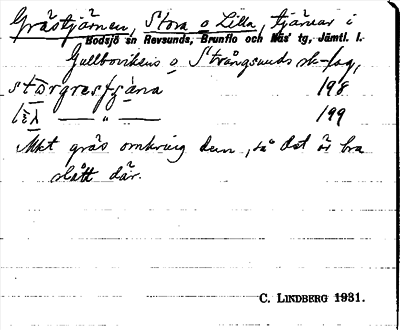 Grästjärnen, Stora o Lilla, tjärnar i
Bodsjö sn Revsunds, Brunflo och Näs' tg, Jämtl. l.
Gullbovikens o Strångsunds sk-lag,
stɔrgresṭjɑ̈na 198
lɛ̀λ — " — 199
Mkt gräs omkring dem, så det är bra
slått där.
C. LINDBERG 1931.